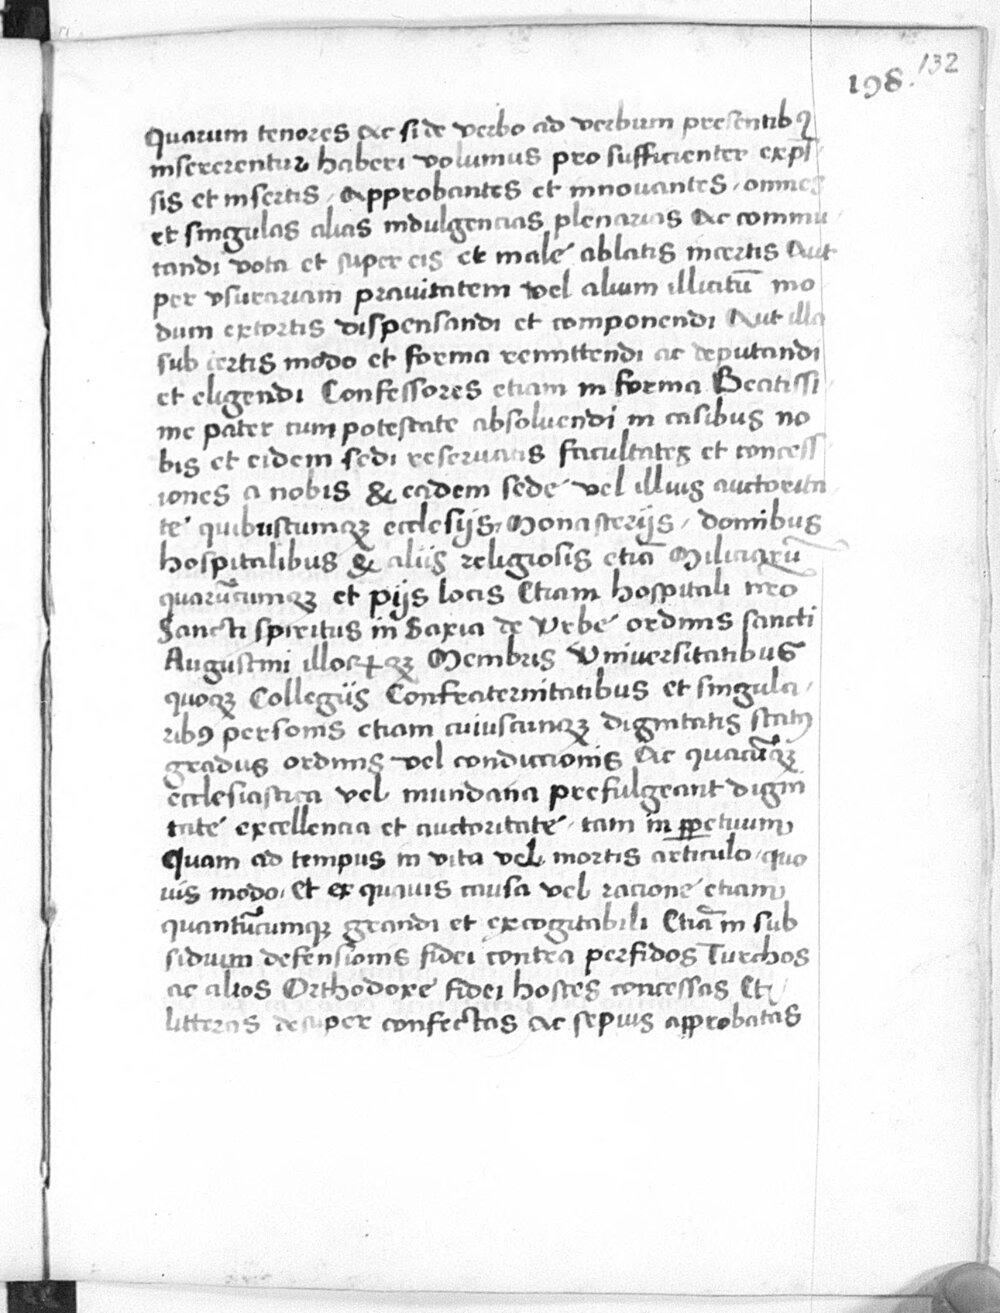 132
198.
Quarum tenores ac si de verbo ad verbum presentibꝰ
insererentur haberi volumus pro sufficienter exp̄s
sis et insertis / Approbantes et innouantes / omnes
et singulas alias indulgencias plenarias Ac commu /
tandi vota et super eis et male ablatis incertis Aut
per vsurariam prauitatem vel alium illicitū mo
dum extortis dispensandi et componendi Aut illa
sub certis modo et forma remittendi ac deputandi
et eligendi Confessores etiam in forma Beatissi /
me pater cum potestate absoluendi in casibus no
bis et eidem sedi reseruatis facultates et concess
iones a nobis & eadem sede vel illius auctorita
te quibuscumqꝫ ecclesijs, Monasterijs / domibus
hospitalibus & aliis religiosis etiā Miliciarū
quarūcumqꝫ et pijs locis Etiam hospitali nr̄o
Sancti spiritus in Saxia de Vrbe ordinis sancti
Augustini illoꝝqꝫ Membris Vniuersitatibus
quoqꝫ Collegiis Confraternitatibus et singula /
ribꝰ personis etiam cuiuscunqꝫ dignitatis statꝰ
gradus ordinis vel condiccionis Ac quacūqꝫ
ecclesiastica vel mundana prefulgeant digni
tate excellencia et auctoritate / tam in ꝑpetuum
Quam ad tempus in vita vel mortis articulo / quo
uis modo / Et ex quauis causa vel racione etiam
quantūcumqꝫ grandi et excogitabili Etiā in sub
sidium defensionis fidei contra perfidos Turchos
ac alios Orthodoxe fidei hostes concessas Et /
litteras desuper confectas ac sepius approbatas